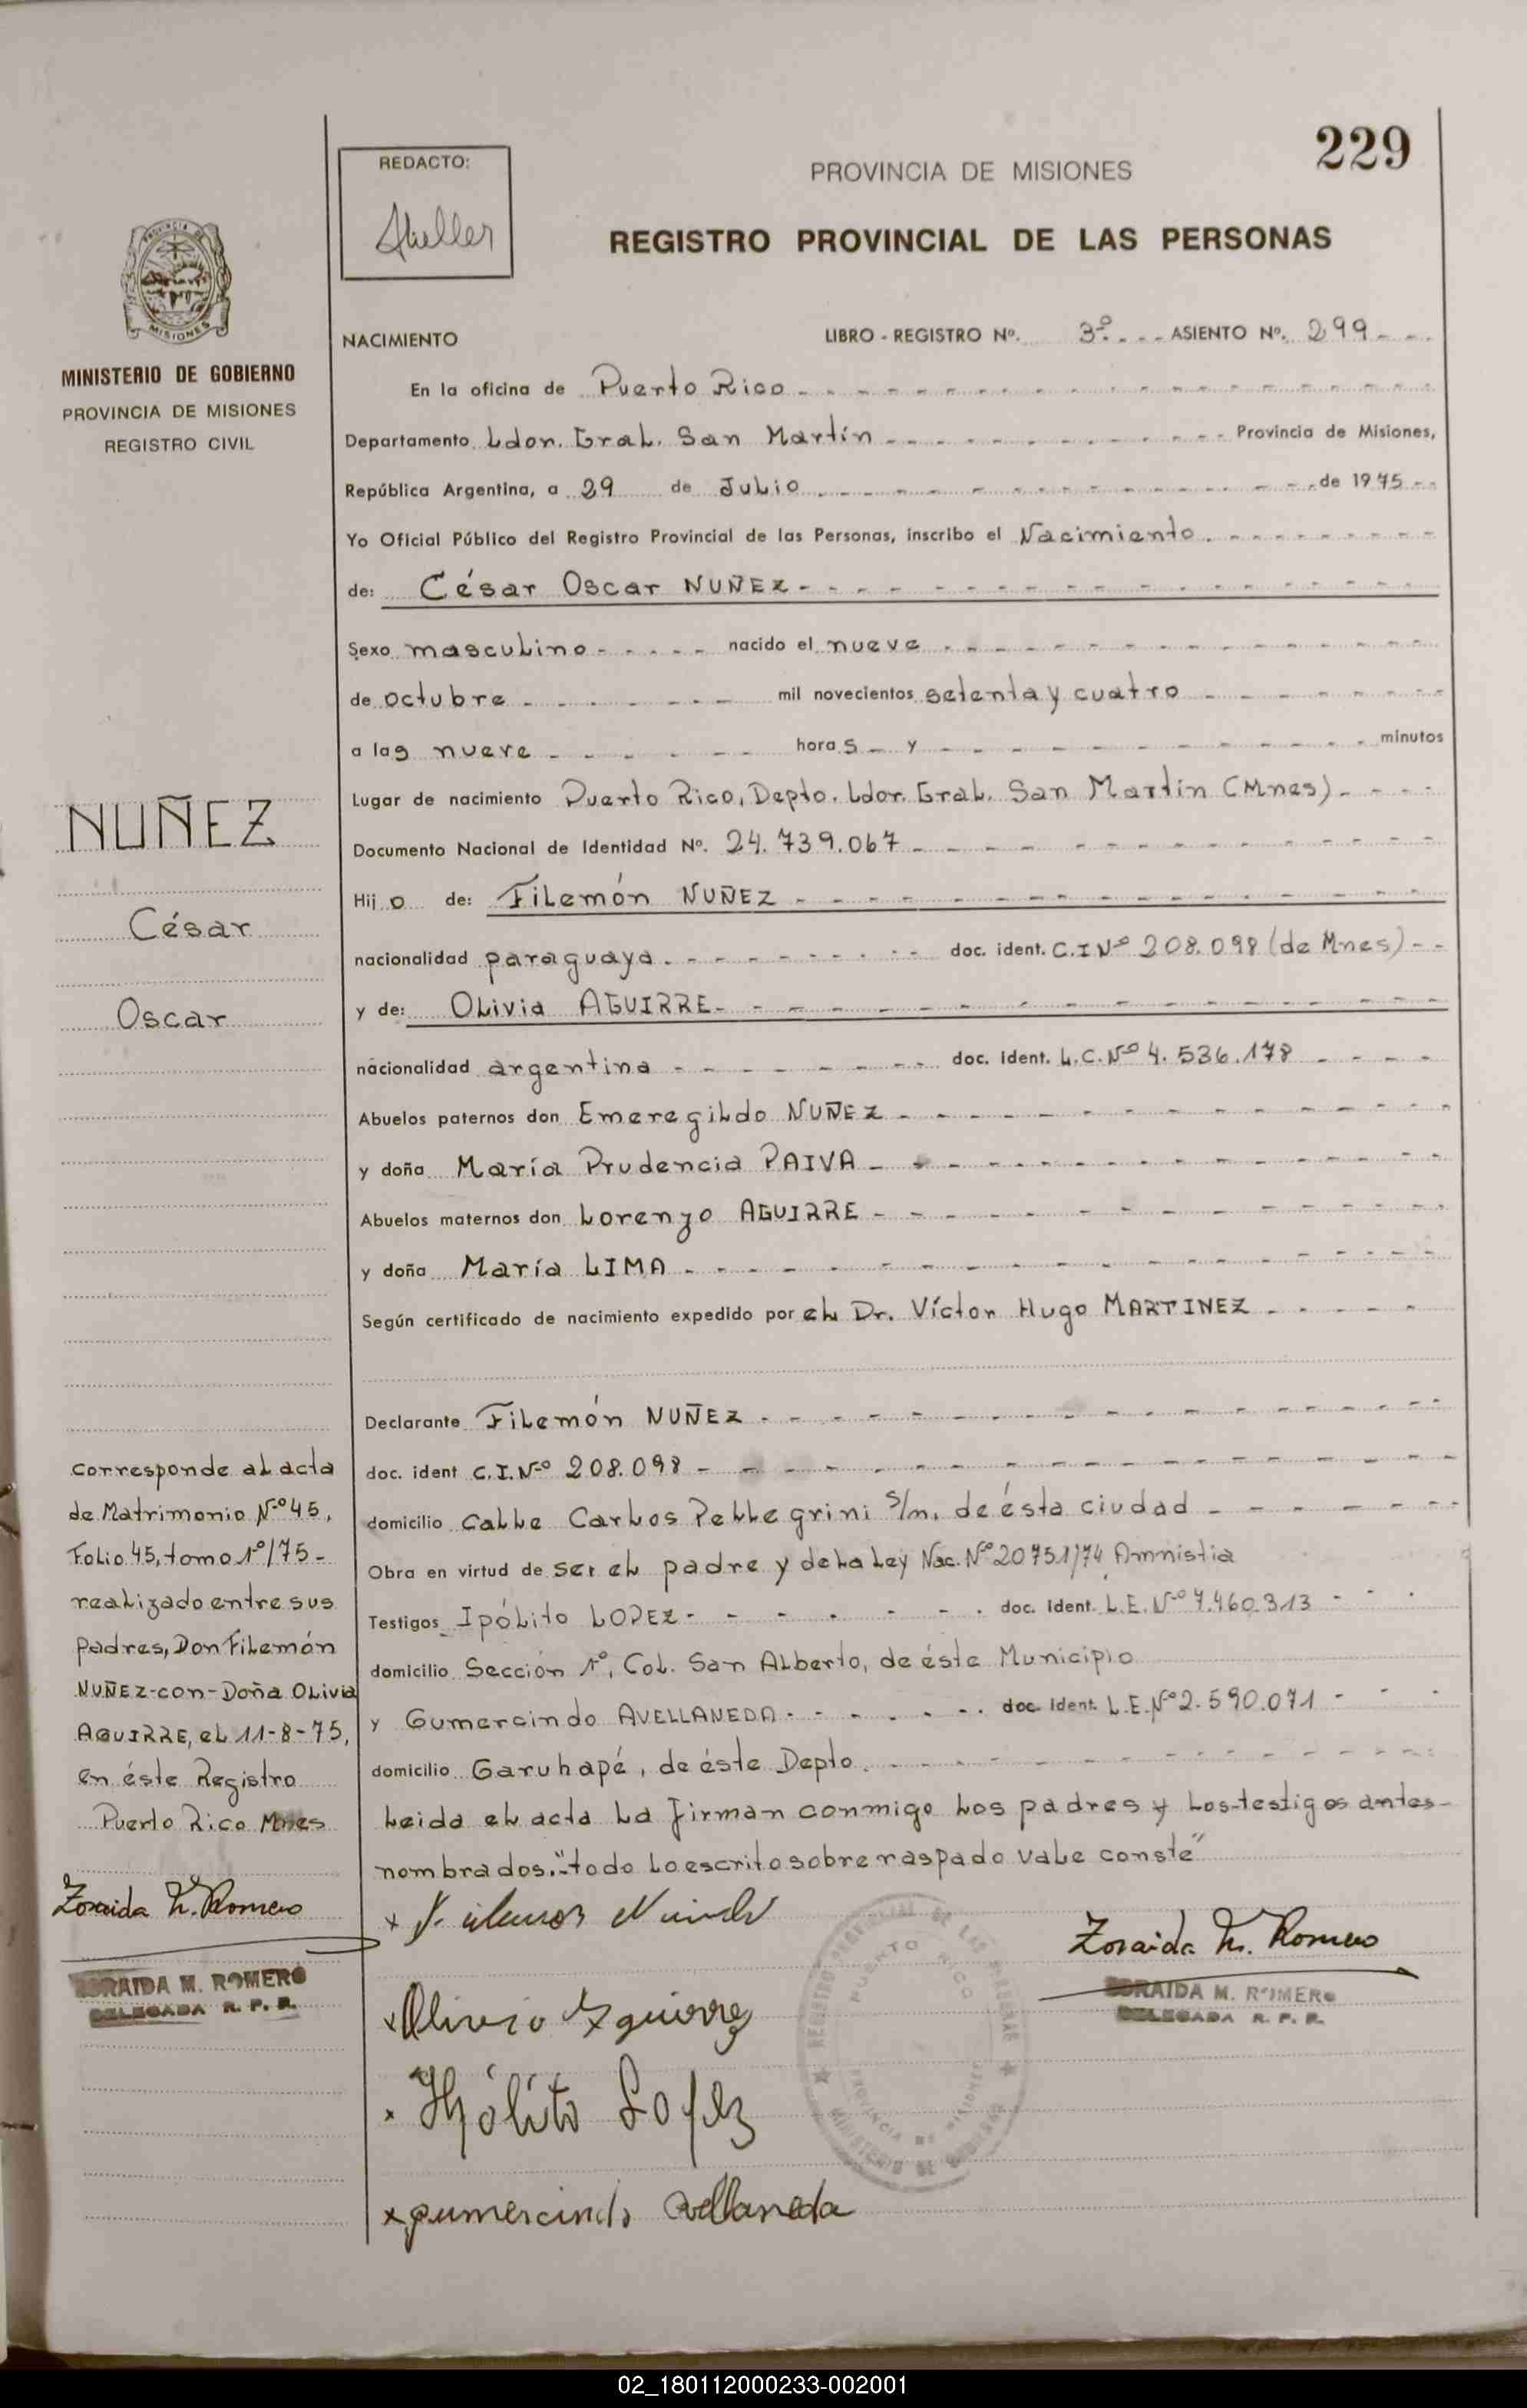 229
REDACTO:
PROVINCIA DE MISIONES
REGISTRO PROVINCIAL DE LAS PERSONAS
MISIONES
MINISTERIO DE GOBIERNO
PROVINCIA DE MISIONES
REGISTRO CIVIL
NACIMIENTO LIBRO - REGISTRO Nº. 3º ASIENTO Nº. 299
En la oficina de Puerto Rico
Departamento Ldor. Gral. San Martín Provincia de Misiones,
República Argentina, a 29 de Julio de 1975
Yo Oficial Público del Registro Provincial de las Personas, inscribo el Nacimiento
de: César Oscar NUÑEZ
Sexo masculino nacido el nueve
de octubre mil novecientos setenta y cuatro
a las nueve horas y minutos
Lugar de nacimiento Puerto Rico, Depto. Ldor. Gral. San Martín (Mnes)
Documento Nacional de Identidad Nº. 24.739.067
Hijo de: Filemón NUÑEZ
nacionalidad paraguaya doc. ident. C.I Nº 208.098 (de Mnes)
y de: Olivia AGUIRRE
nacionalidad argentina doc. ident. L.C. Nº 4.536.178
Abuelos paternos don Emeregildo NUÑEZ
y doña María Prudencia PAIVA
Abuelos maternos don Lorenzo AGUIRRE
y doña María LIMA
Según certificado de nacimiento expedido por el Dr. Víctor Hugo MARTINEZ
Declarante Filemón NUÑEZ
doc. ident C.I. Nº 208.098
domicilio Calle Carlos Pellegrini s/n, de ésta ciudad
Obra en virtud de ser el padre y de la Ley Nac. Nº 20751/74 Amnistia
Testigos Ipólito LOPEZ doc. ident. L.E. Nº 7.460.313
domicilio Sección 1º, Col. San Alberto, de éste Municipio
y Gumercindo AVELLANEDA doc. ident. L.E. Nº 2.590.071
domicilio Garuhapé, de éste Depto.
Leida el acta la firman conmigo los padres y los testigos antes-
nombrados."todo lo escrito sobre raspado vale conste"
NUÑEZ
César
Oscar
corresponde al acta
de Matrimonio Nº 45,
Folio 45, tomo 1º/75-
realizado entre sus
padres, Don Filemón
NUÑEZ-con-Doña Olivia
AGUIRRE, el 11-8-75,
en éste Registro
Puerto Rico Mnes
Zoraida M. Romero
ZORAIDA M. ROMERO
DELEGADA R. P. P.
Olivia Aguirre
Hipólito Lopez
gumercindo avellaneda
REGISTRO PROVINCIAL DE LAS PERSONAS
PUERTO RICO
PROVINCIA DE MISIONES
MINISTERIO DE GOBIERNO
Zoraida M. Romero
ZORAIDA M. ROMERO
DELEGADA R. P. P.
02_180112000233-002001